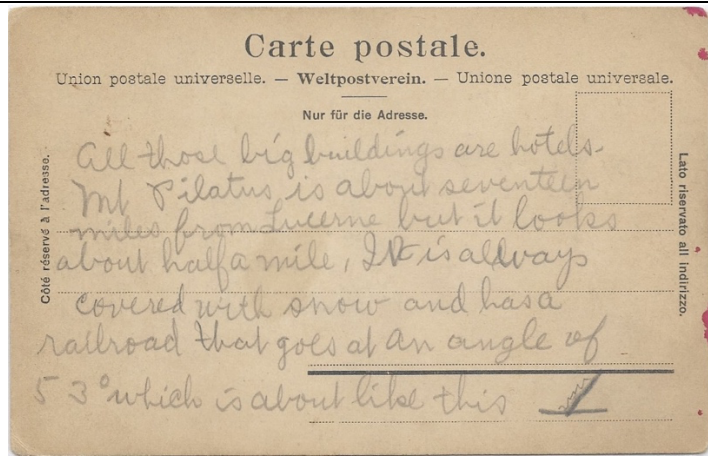 Carte postale.
Union postale universelle. — Weltpostverein. — Unione postale universale.
Nur für die Adresse.
Côté réservé à l'adresse.
Lato riservato all indirizzo.
All those big buildings are hotels.
Mt Pilatus is about seventeen
miles from Lucerne but it looks
about half a mile, It is allways
covered with snow and has a
railroad that goes at an angle of
53° which is about like this